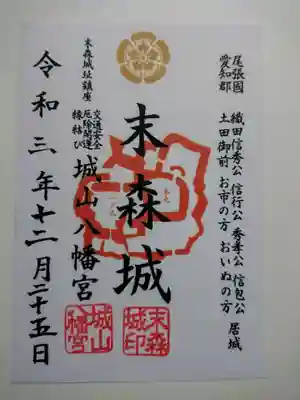 尾張國
愛知郡
織田信秀公 信行公 秀孝公 信包公 居城
土田御前 お市の方 おいぬの方
末森城
末森城址鎮座
交通安全
厄除開運
縁結び
城山八幡宮
令和三年十二月二十五日
末森
城印
城山
八幡宮